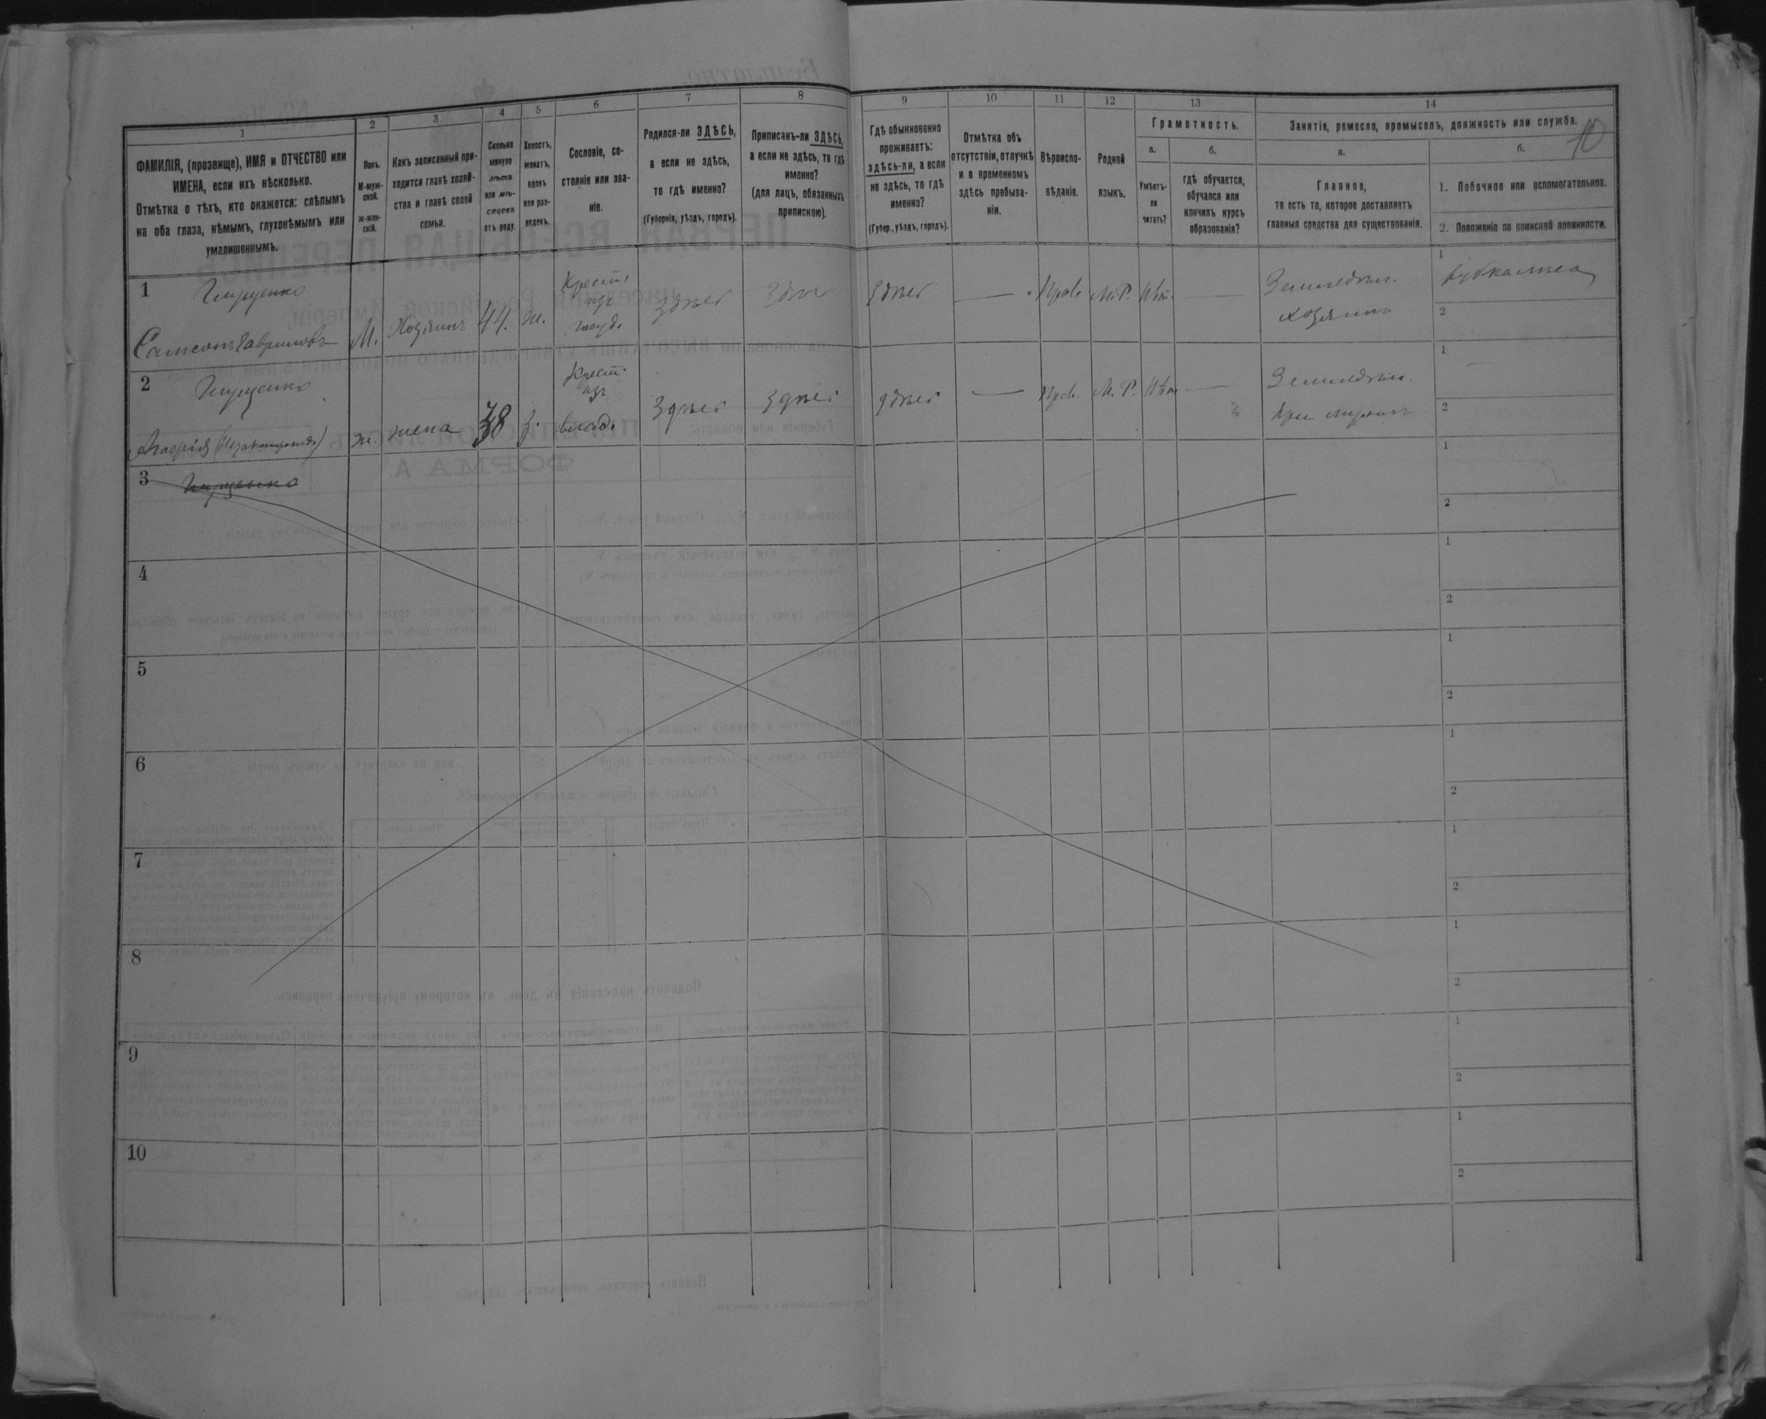 10
1
2
3
4
5
6
7
8
9
10
11
12
13
14
ФАМИЛІЯ, (прозвище), ИМЯ и ОТЧЕСТВО или
ИМЕНА, если ихъ нѣсколько.
Отмѣтка о тѣхъ, кто окажется: слѣпымъ
на оба глаза, нѣмымъ, глухонѣмымъ или
умалишеннымъ.
Полъ.
М-муж-
ской.
Ж-жен-
скій.
Какъ записанный при-
ходится главѣ хозяй-
ства и главѣ своей
семьи.
Сколько
минуло
лѣтъ
или мѣ-
сяцевъ
отъ роду.
Холостъ,
женатъ,
вдовъ
или раз-
веденъ.
Сословіе, со-
стояніе или зва-
ніе.
Родился-ли ЗДѢСЬ,
а если не здѣсь,
то гдѣ именно?
(Губернія, уѣздъ, городъ).
Приписанъ-ли ЗДѢСЬ,
а если не здѣсь, то гдѣ
именно?
(для лицъ, обязанныхъ
припискою).
Гдѣ обыкновенно
проживаетъ:
здѣсь-ли, а если
не здѣсь, то гдѣ
именно?
(Губер., уѣздъ, городъ).
Отмѣтка объ
отсутствіи, отлучкѣ
и о временномъ
здѣсь пребыва-
ніи.
Вѣроиспо-
вѣданіе.
Родной
языкъ.
Грамотность.
а.
Умѣетъ-
ли
читать?
б.
гдѣ обучается,
обучался или
кончилъ курсъ
образованія?
Занятіе, ремесло, промыселъ, должность или служба.
а.
Главное,
то есть то, которое доставляетъ
главныя средства для существованія.
б.
1. Побочное или вспомогательное.
2. Положеніе по воинской повинности.
1
Самсонъ Гавриловъ
М.
Хозяинъ
44.
ж.
Крест.
изъ
госуд.
здѣсь
здѣсь
здѣсь
—
Прав.
М.Р.
Нѣт.
—
Земледѣл.
хозяинъ
1
2
2
ж.
жена
38
з.
Крест.
изъ
влад.
Здѣсь
здѣсь
здѣсь
—
Прав.
М.Р.
Нѣт.
—
Земледѣл.
При мужѣ
1
—
2
3
1
2
4
1
2
5
1
2
6
1
2
7
1
2
8
1
2
9
1
2
10
1
2